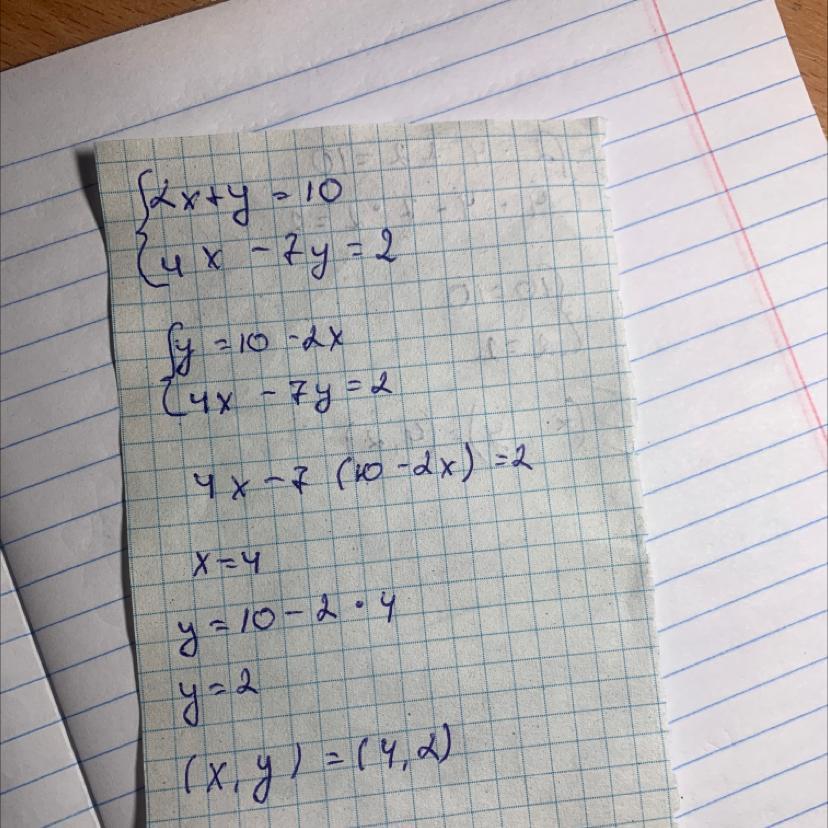 {2x+y=10
{4x-7y=2
{y=10-2x
{4x-7y=2
4x-7(10-2x)=2
x=4
y=10-2·4
y=2
(x,y)=(4,2)